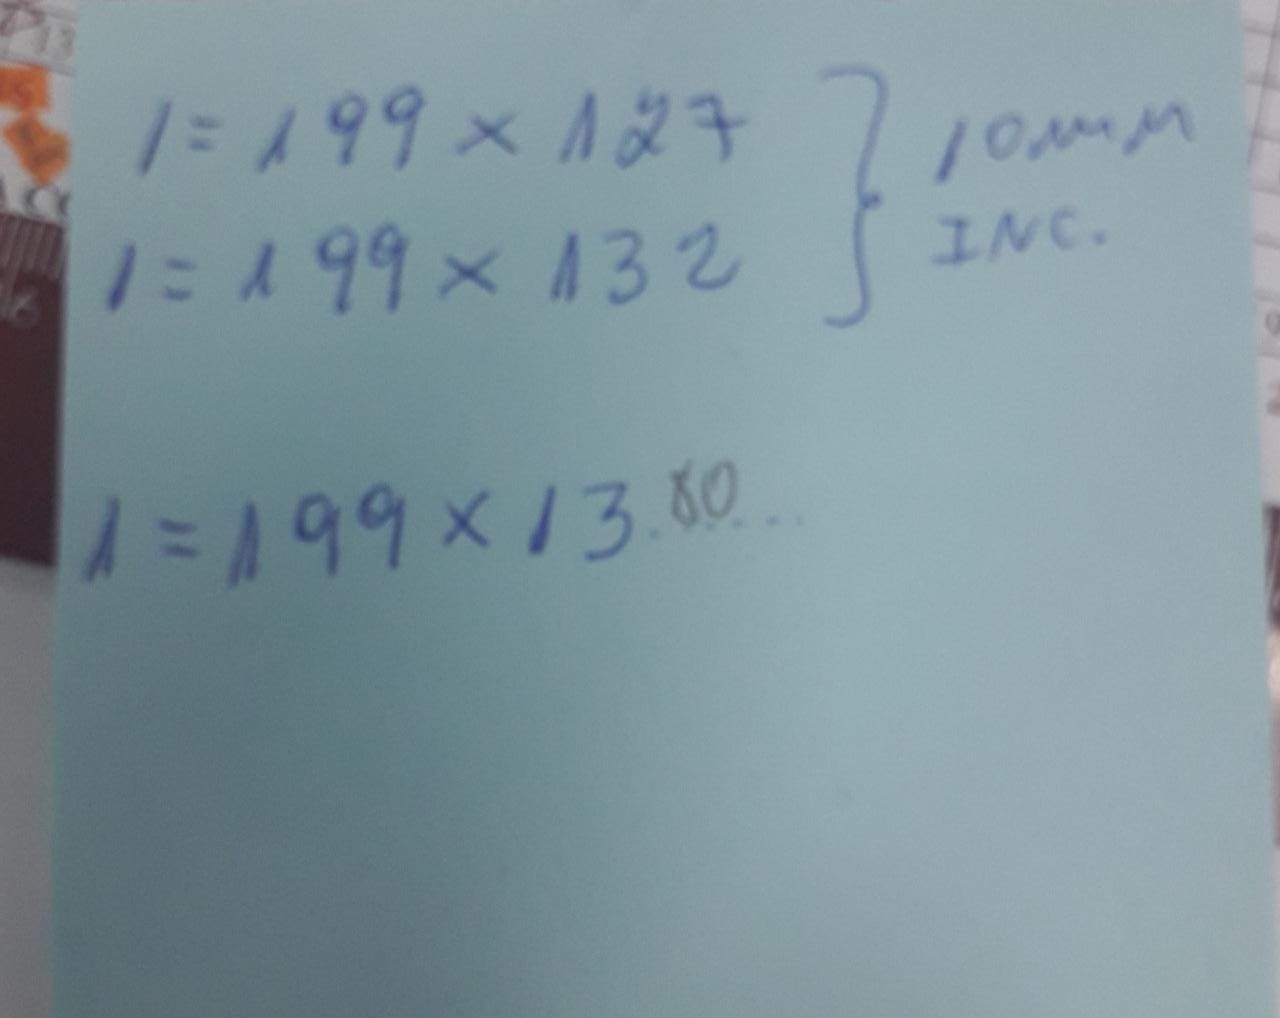 1 = 199 x 127
1 = 199 x 132
10 mm
INC.
1 = 199 x 13.80....